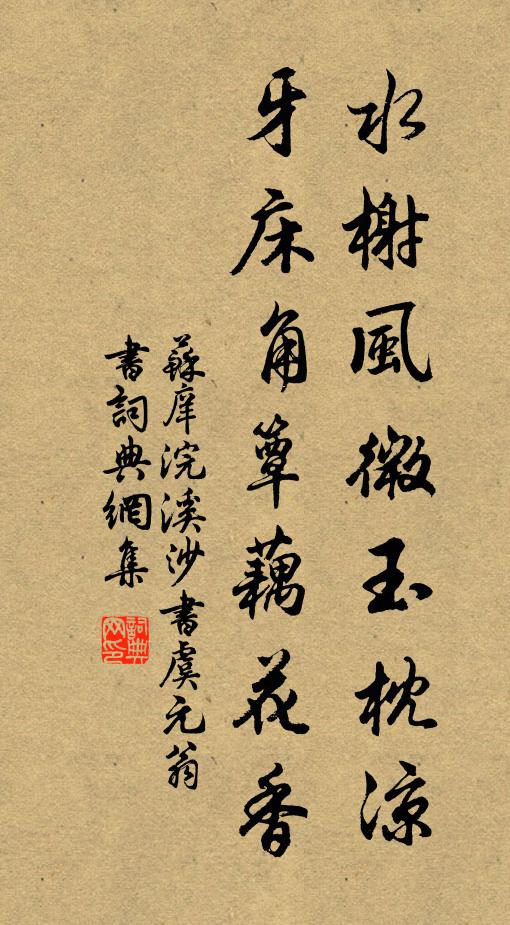 水榭風微玉枕涼
牙床角簟藕花香
蘇庠浣溪沙書虞元翁
書詞典網集
詞典
网印